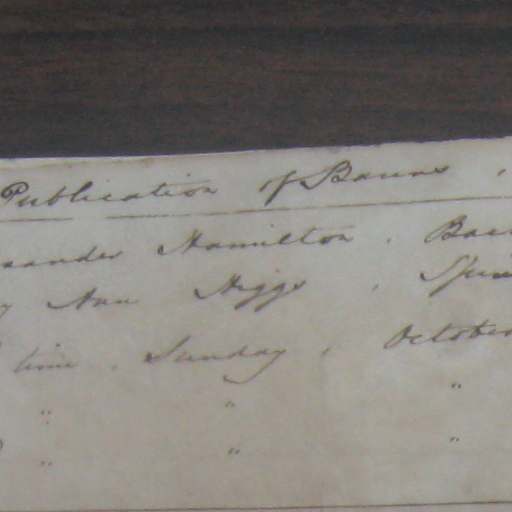 Publication of Banns .
Hamilton . Bac
Ann Higgs , Spin
time , Sunday , October
" " "
" " "